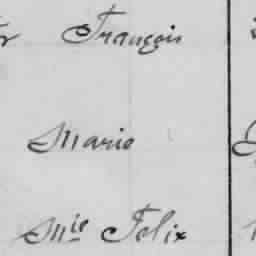 François
Marie
Mie Felix